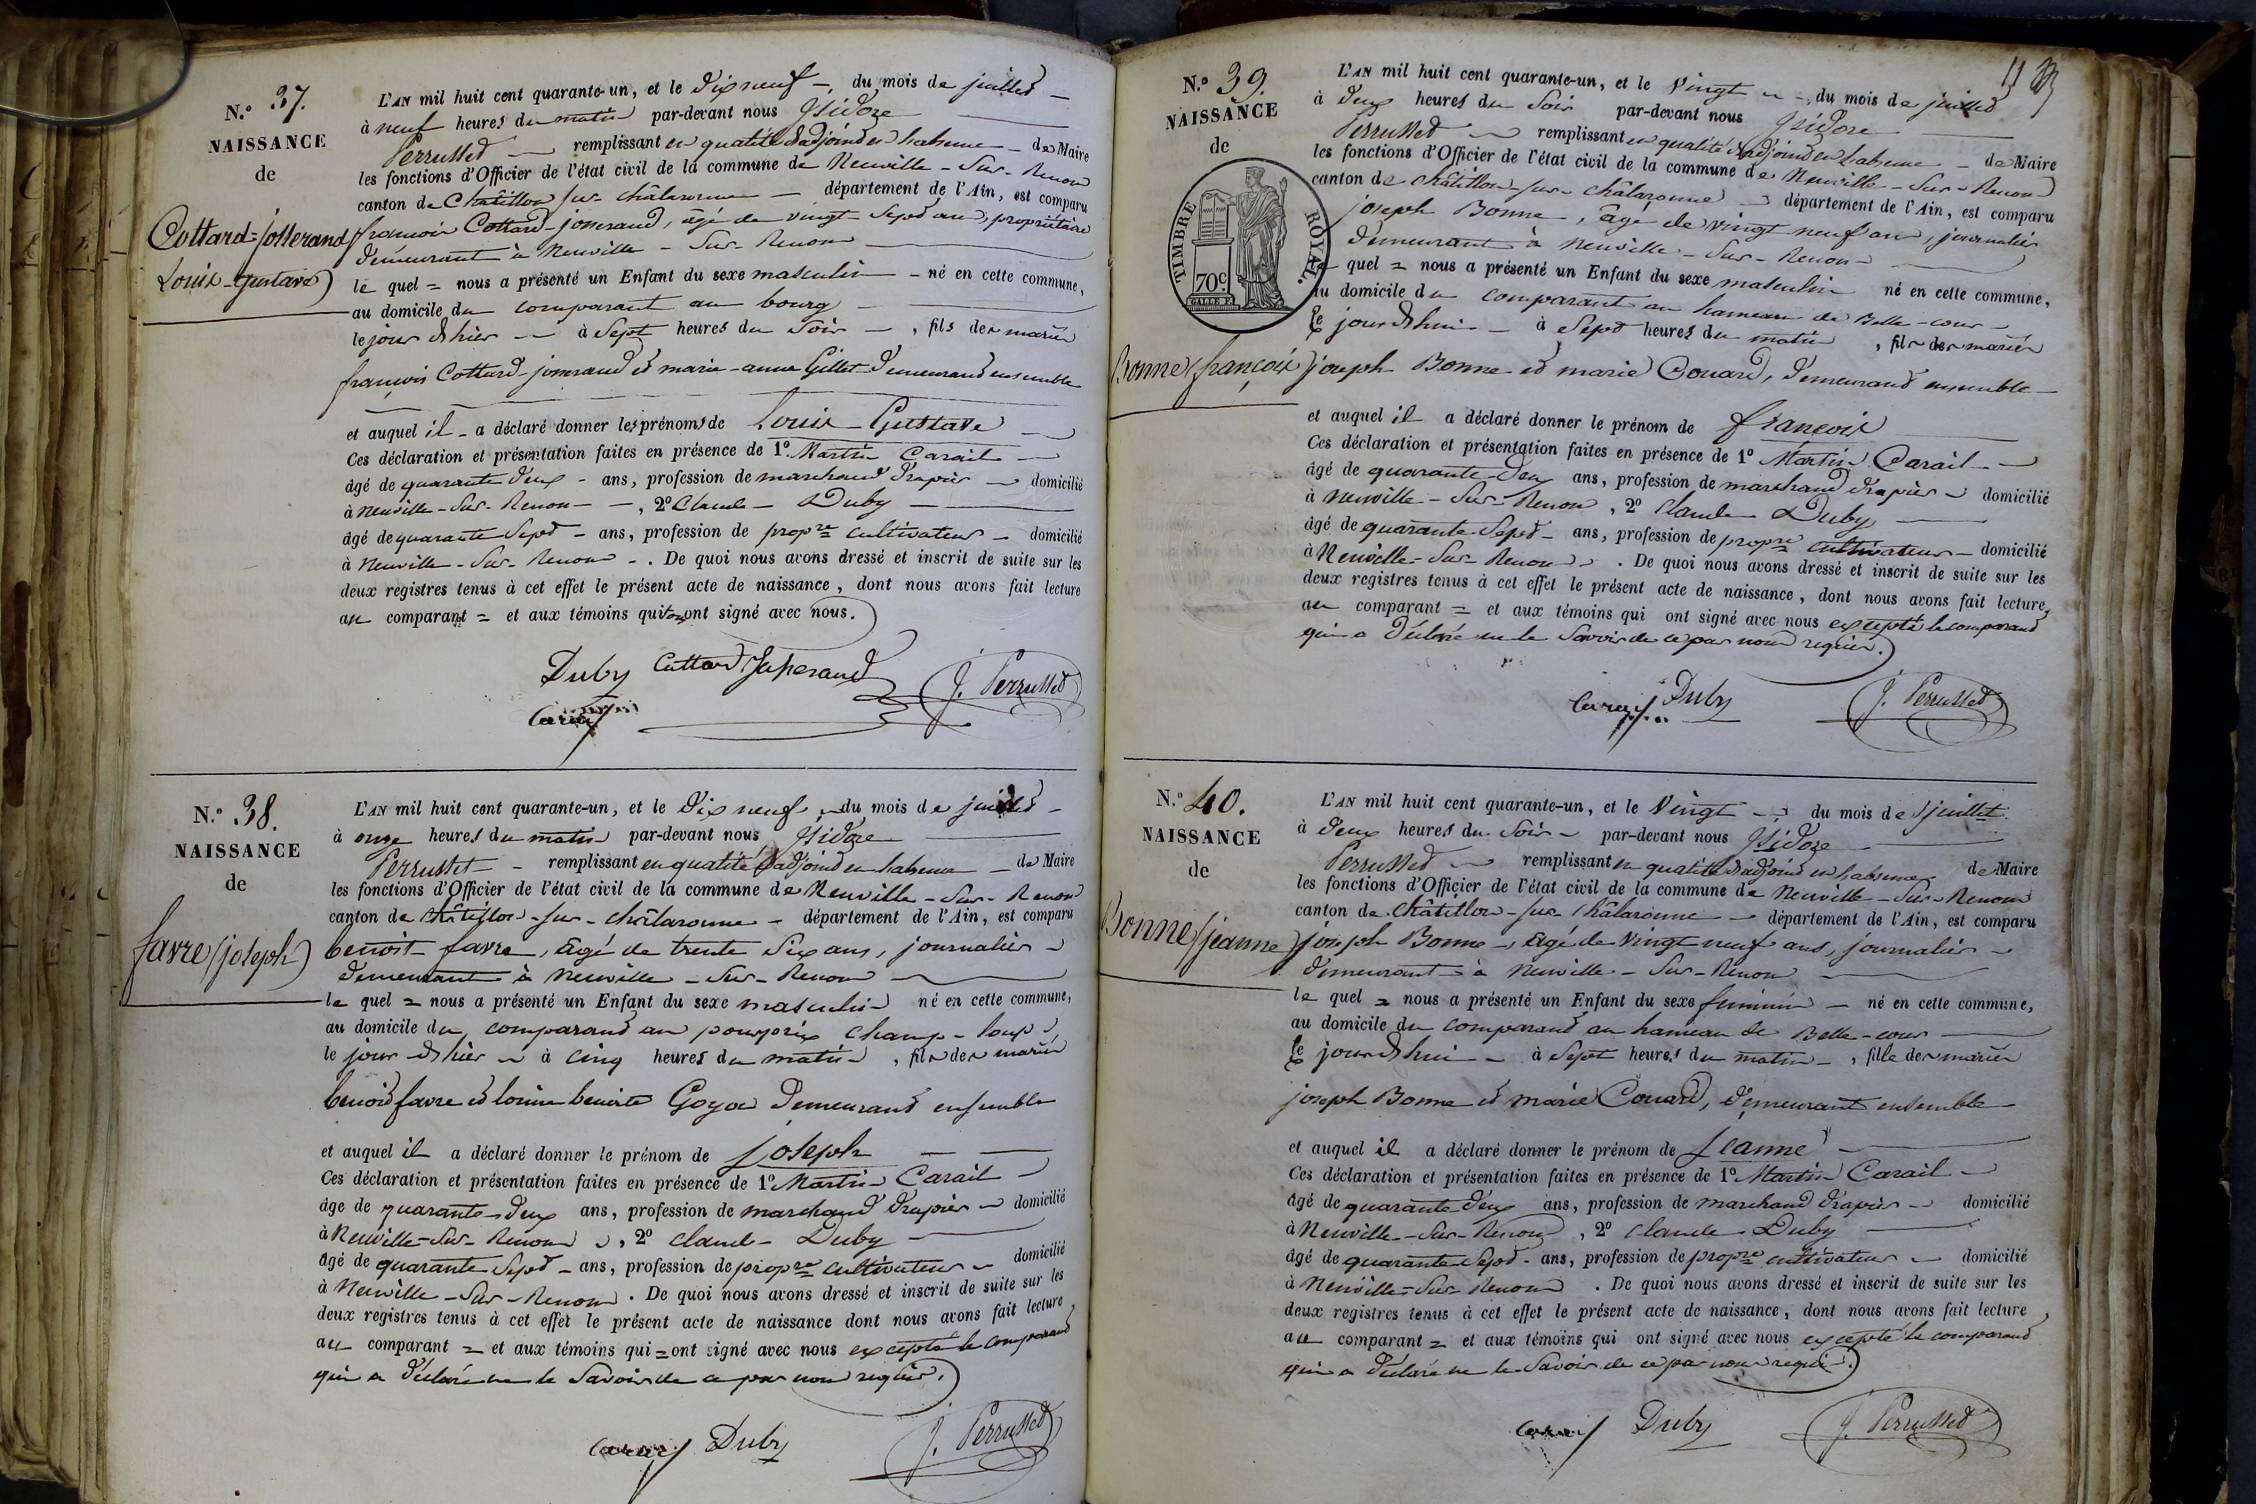 N.º 37.
NAISSANCE
de
Cottard-josserand
Louis-Gustave)
L'AN mil huit cent quarante-un, et le dix neuf -, du mois de juillet -
à neuf heures du matin par-devant nous Isidore
Perrusset - remplissant en qualité d'adjoint en l'absence - de Maire
les fonctions d'Officier de l'état civil de la commune de Neuville-Sur-Renon
canton de Châtillon sur châlaronne - département de l'Ain, est comparu
françois Cottard-josserand, agé de vingt sept ans, propriétaire
demeurant à Neuville-Sur-Renon
le quel = nous a présenté un Enfant du sexe masculin - né en cette commune,
au domicile du comparant au bourg
le jour d'hier - à Sept heures du Soir -, fils des mariés
françois Cottard-josserand et marie-anne Gillet demeurant ensemble
et auquel il - a déclaré donner les prénoms de Louis-Gustave
Ces déclaration et présentation faites en présence de 1º. Martin Carail
âgé de quarante deux - ans, profession de marchand drapier - domicilié
à Neuville-Sur-Renon -, 2º Claude Duby
âgé de quarante Sept - ans, profession de propre cultivateur - domicilié
à Neuville-Sur-Renon -. De quoi nous avons dressé et inscrit de suite sur les
deux registres tenus à cet effet le présent acte de naissance, dont nous avons fait lecture
au comparant = et aux témoins qui ont signé avec nous.
Duby Cottard Josserand J. Perrusset
Carail
N.º 38.
NAISSANCE
de
favre (joseph)
L'AN mil huit cent quarante-un, et le dix neuf - du mois de juillet -
à onze heures du matin par-devant nous Isidore
Perrusset - remplissant en qualité d'adjoint en l'absence - de Maire
les fonctions d'Officier de l'état civil de la commune de Neuville-Sur-Renon
canton de Châtillon-sur-châlaronne - département de l'Ain, est comparu
benoit favre, âgé de trente Six ans, journalier -
demeurant à Neuville-Sur-Renon
le quel = nous a présenté un Enfant du sexe masculin né en cette commune,
au domicile du comparant au pourprix champ-loup,
le jour d'hier - à cinq heures du matin -, fils des mariés
benoit favre et benoite Goyon demeurant ensemble
et auquel il a déclaré donner le prénom de joseph
Ces déclaration et présentation faites en présence de 1º Martin Carail
âge de quarante-deux ans, profession de marchand drapier - domicilié
à Neuville-Sur-Renon, 2º claude Duby
âgé de quarante Sept - ans, profession de propre cultivateur - domicilié
à Neuville-Sur-Renon. De quoi nous avons dressé et inscrit de suite sur les
deux registres tenus à cet effet le présent acte de naissance dont nous avons fait lecture
au comparant = et aux témoins qui = ont signé avec nous excepté le comparant
qui a déclaré ne le Savoir de ce par nous requis.
Carail Duby J. Perrusset
11
N.º 39.
NAISSANCE
de
TIMBRE ROYAL.
70c
Bonne (françois)
L'AN mil huit cent quarante-un, et le Vingt -, du mois de juillet
à deux heures du Soir par-devant nous Isidore
Perrusset - remplissant en qualité d'adjoint en l'absence - de Maire
les fonctions d'Officier de l'état civil de la commune de Neuville-Sur-Renon
canton de châtillon-sur-châlaronne - département de l'Ain, est comparu
joseph Bonne, âgé de vingt neuf ans, journalier
demeurant à Neuville-Sur-Renon
le quel = nous a présenté un Enfant du sexe masculin né en cette commune,
au domicile du comparant au hameau de Belle-cour
le jourd'hui - à Sept heures du matin, fils des mariés
joseph Bonne et marie Couard, demeurant ensemble
et auquel il a déclaré donner le prénom de françois
Ces déclaration et présentation faites en présence de 1º Martin Carail
âgé de quarante-deux ans, profession de marchand drapier - domicilié
à Neuville-Sur-Renon, 2º Claude Duby
âgé de quarante Sept - ans, profession de propre cultivateur - domicilié
à Neuville-Sur-Renon. De quoi nous avons dressé et inscrit de suite sur les
deux registres tenus à cet effet le présent acte de naissance, dont nous avons fait lecture,
au comparant = et aux témoins qui ont signé avec nous excepté le comparant
qui a déclaré ne le Savoir de ce par nous requis.
Carail Duby J. Perrusset
N.º 40.
NAISSANCE
de
Bonne (jeanne)
L'AN mil huit cent quarante-un, et le Vingt -, du mois de juillet
à deux heures du Soir - par-devant nous Isidore
Perrusset - remplissant en qualité d'adjoint en l'absence de Maire
les fonctions d'Officier de l'état civil de la commune de Neuville-Sur-Renon
canton de Châtillon-sur châlaronne - département de l'Ain, est comparu
joseph Bonne, âgé de Vingt neuf ans, journalier -
demeurant à Neuville-Sur-Renon
le quel = nous a présenté un Enfant du sexe feminin - né en cette commune,
au domicile du comparant au hameau de Belle-cour
le jourd'hui - à Sept heures du matin -, fille des mariés
joseph Bonne et marie Couard, demeurant ensemble
et auquel il a déclaré donner le prénom de jeanne
Ces déclaration et présentation faites en présence de 1º Martin Carail -
âgé de quarante deux ans, profession de marchand drapier - domicilié
à Neuville-Sur-Renon, 2º claude Duby
âgé de quarante Sept - ans, profession de propre cultivateur - domicilié
à Neuville-Sur-Renon. De quoi nous avons dressé et inscrit de suite sur les
deux registres tenus à cet effet le présent acte de naissance, dont nous avons fait lecture,
au comparant = et aux témoins qui ont signé avec nous excepté le comparant
qui a déclaré ne le Savoir de ce par nous requis.
Carail Duby J. Perrusset